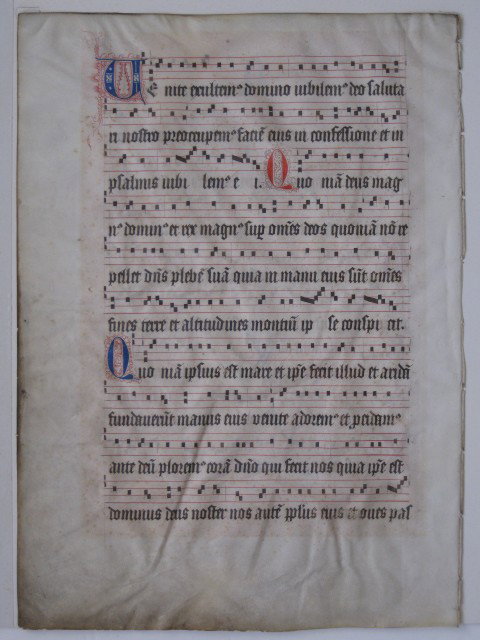 Ue nite exultem⁹ domino iubilem⁹ deo saluta
ri nostro preocupem⁹ faciē eius in confessione et in
psalmis iubi lem⁹ e i. Quo niā deus mag
n⁹ domin⁹ et rex magn⁹ sup om̄es deos quoniā nō re
pellet dn̄s plebē suā quia in manu eius sūt om̄es
fines terre et altitudines montiū ip se conspi cit.
Quo niā ipsius est mare et ip̄e fecit illud et aridā
fundaverūt manus eius venite adorem⁹ et pcidam⁹
ante deū plorem⁹ corā dn̄o qui fecit nos quia ip̄e est
dominus deus noster nos autē pplus eius et oues pas